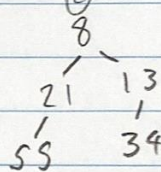 8
21 13
55 34